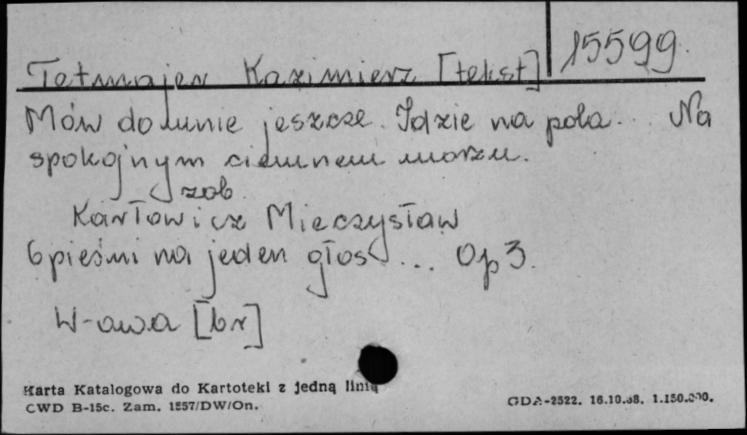 15599.
Tetmajer Kazimierz [tekst]
Mów do mnie jeszcze. Idzie na pola... Na
spokojnym ciemnem morzu.
zob.
Karłowicz Mieczysław
6 pieśni na jeden głos ... Op 3.
W-awa [br]
Karta Katalogowa do Kartoteki z jedną linią
CWD B-15c. Zam. 1557/DW/On.
GDA-2522. 16.10.68. 1.150.000.